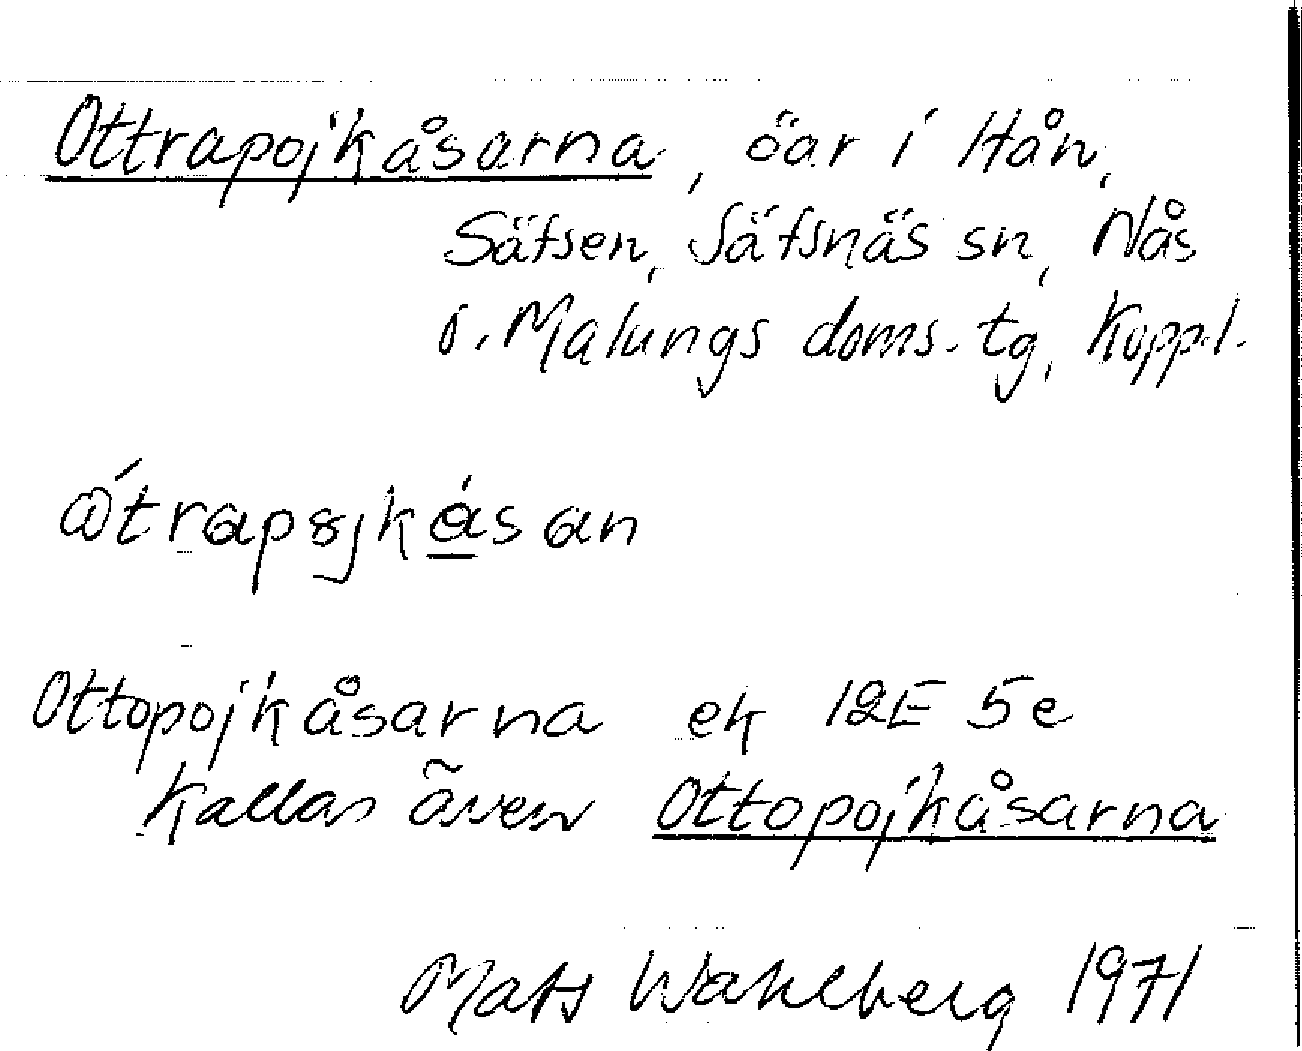 Ottrapojkåsarna, öar i Hån,
Säfsen, Säfsnäs sn, Nås
o. Malungs doms. tg, Koppl.
Ottopojkåsarna ek 12E 5e
Kallas även Ottopojkåsarna
Mats Wahlberg 1971